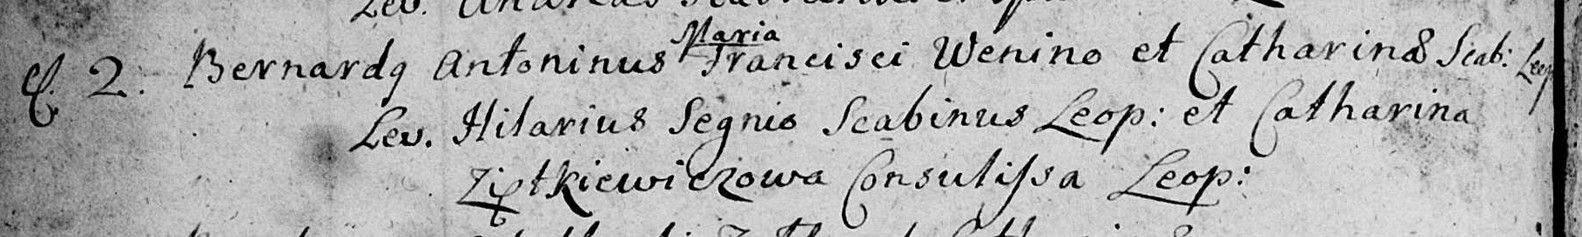 Lev. Andreas
Maria
Ef. 2. Bernardq Antoninus Francisci Wenino et Catharinæ Scab: Leop
Lev. Hilarius Segnio Scabinus Leop: et Catharina
Ziętkiewiczowa Consulissa Leop: